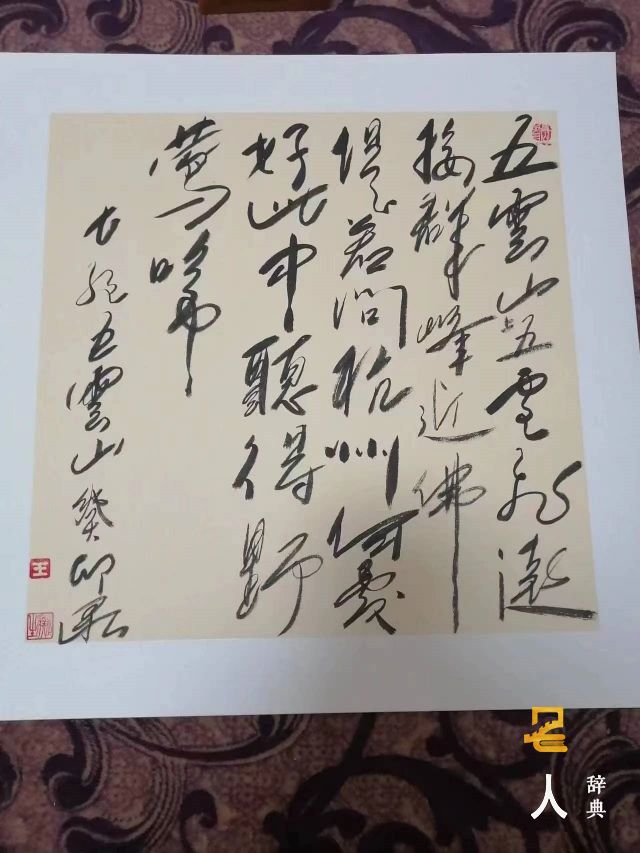 五雲山上五雲飛遠
接群峰近拂
堤若問杭州何處
好此中聽得野
鶯啼
七绝五雲山癸卯
王
名人
辞典